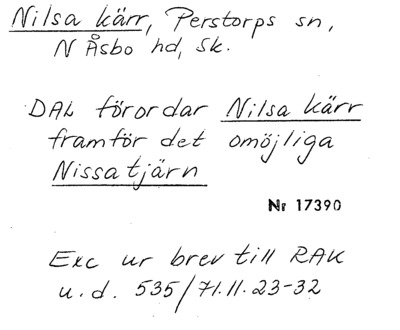 Nilsa kärr, Perstorps sn,
N Åsbo hd, Sk.
DAL förordar Nilsa kärr
framför det omöjliga
Nissatjärn
Nr 17390
Exc ur brev till RAK
u.d. 535/71.11.23-32